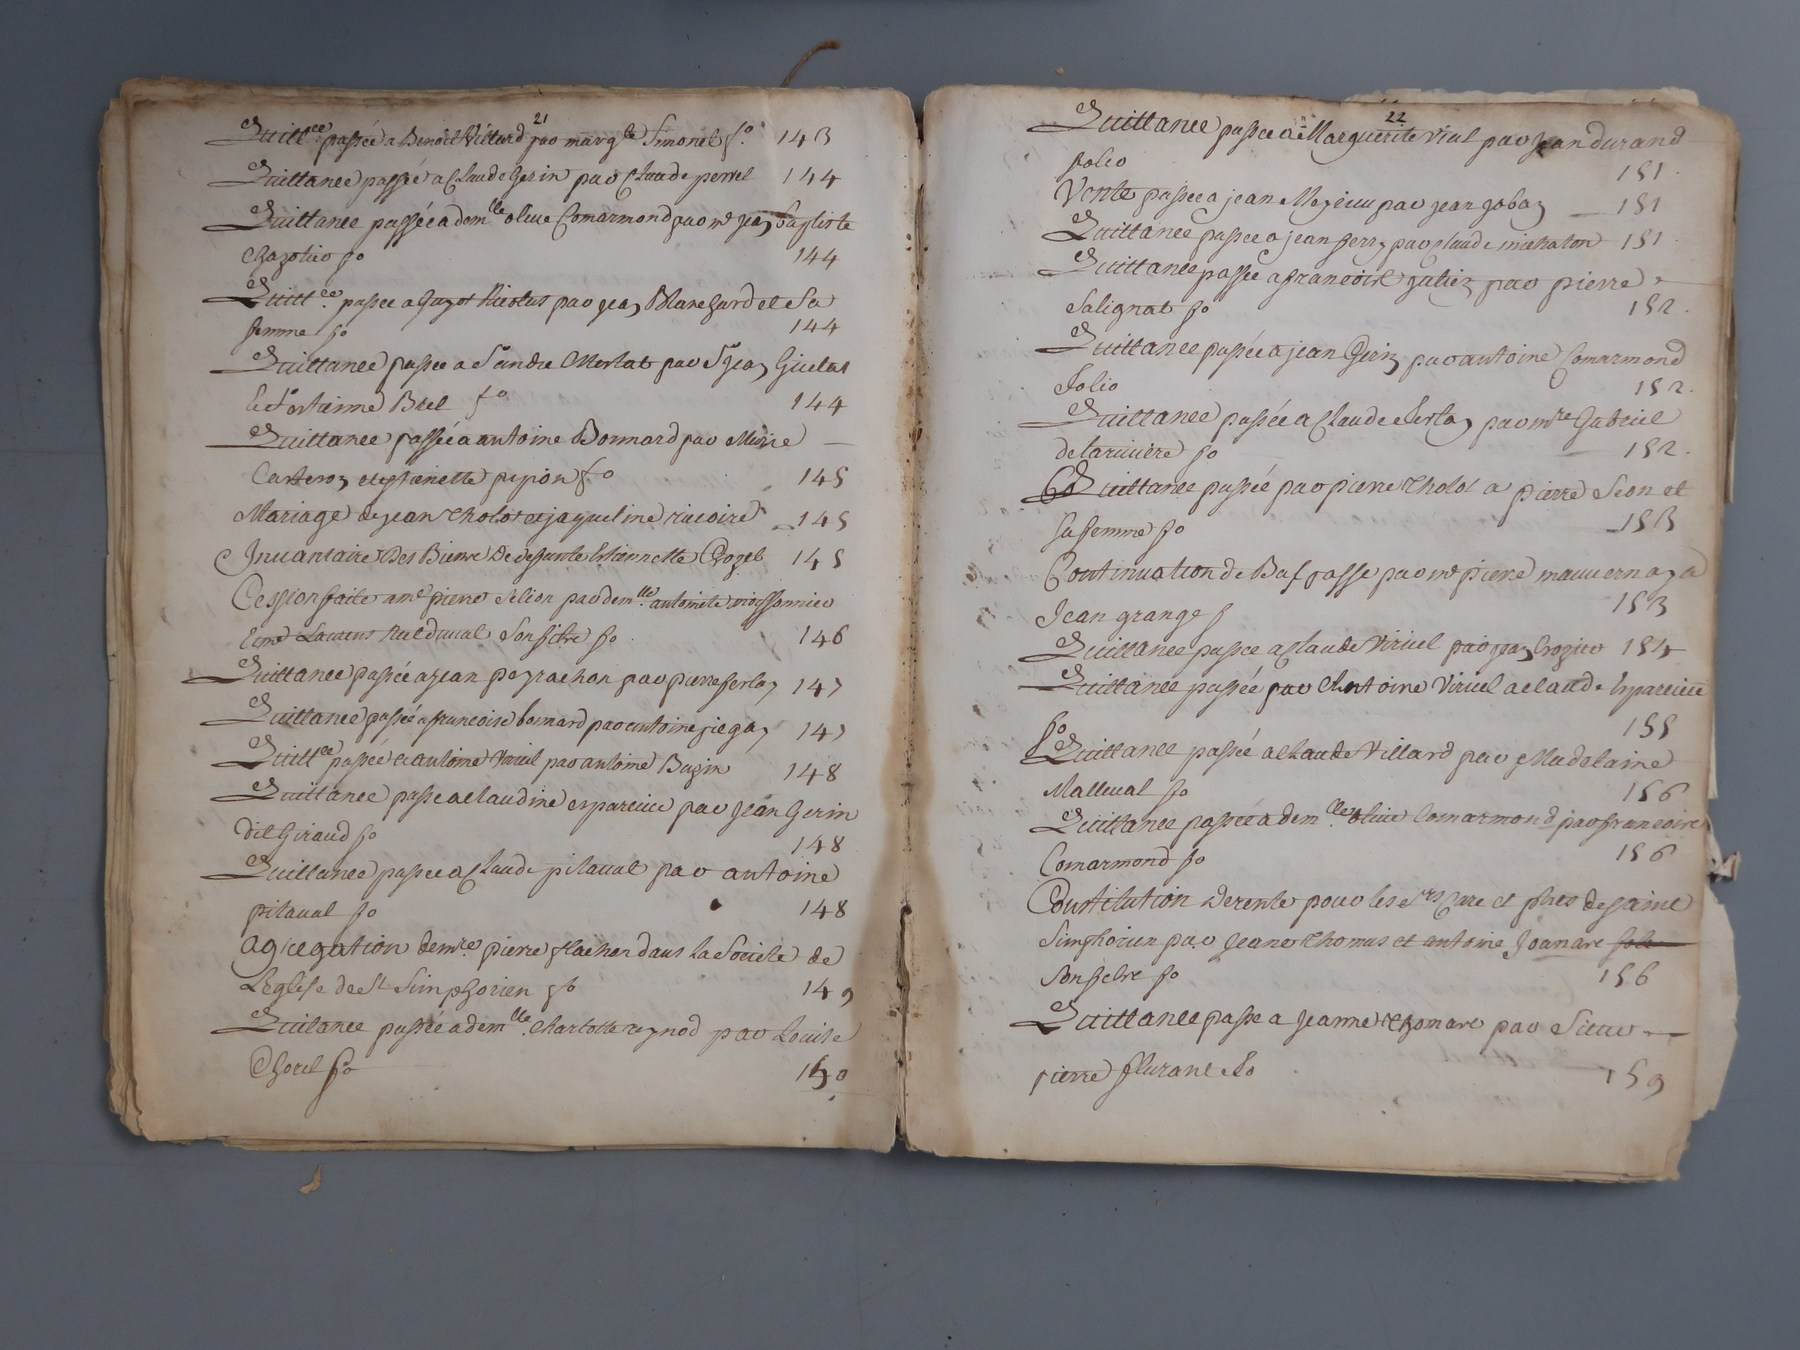 21
Quittce passée a Benoit Villard par margte Simonet fo 143
Quittance passée a Claude Gerin par Claude perret 144
Quittance passée a demlle oliue Comarmond par mr jean baptiste
fo 144
Quittce passée a Nicolas par jean Blanchard et Sa
femme fo 144
Quittance passée a Merlat par Sr jean
et fo 144
Quittance passée a antoine Bonnard par
et pipon fo 145
Mariage de jean tholot et jaqueline riuoire 145
Inuantaire Des Biens De defunte Estiennette 145
Cession faite a me pierre par demlle
Son fo 146
Quittance passée a jean peyrachon par pierre ferlay 147
Quittance passée a francoise bonnard par antoine 147
Quittce passée a antoine par antoine Bazin 148
Quittance passe a claudine esparcieu par jean Gerin
dit Giraud fo 148
Quittance passée a Claude pitaual par antoine
pitaual fo 148
agregation de mre pierre flachon dans La Societe de
L'Eglise de St Simphorien fo 149
Quitance passée a demlle charlotte reynod par Louise
Thoril fo
22
Quittance passée a Marguerite Vial par jean durand
folio 151
Vente passée a jean par jean 151
Quittance passée a jean ferry par claude michalon 151
Quittance passée a francois par pierre
Salignat fo 152
Quittance passée a jean Gerin par antoine Comarmond
folio 152
Quittance passée a Claude ferlay par mre Gabriel
delariuiere fo 152
Quittance passée par pierre tholot a pierre Seon et
sa femme fo 153
Continuation de Bail passé par me pierre mauuernay a
Jean grange f 153
Quittance passée a Claude Viriuel par jean Crozier 154
Quittance passée par Antoine Viriuel a claude Esparcieu
fo 155
Quittance passée a Claude Villard par Madelaine
Malleual fo 156
Quittance passée a demlle oliue Comarmond par francoise
Comarmond fo 156
Constitution de rente pour les srs Cure et pbres de saint
Simphorien par Jeane thomas et antoine Joanare
fo 156
Quittance passe a Jeanne thomare par Sieur
pierre flurant fo 159